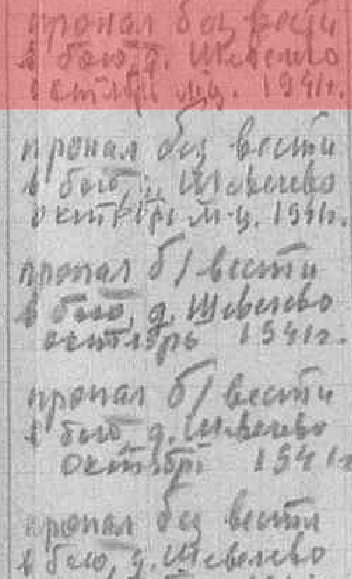 пропал без вести
в бою, д. Шевелево
октябрь м-ц. 1941г.
пропал без вести
в бою, д. Шевелево
октябрь м-ц. 1941г.
пропал б/вести
в бою, д. Шевелево
октябрь 1941г.
пропал б/вести
в бою, д. Шевелево
октябрь 1941г
пропал без вести
в бою, д. Шевелево